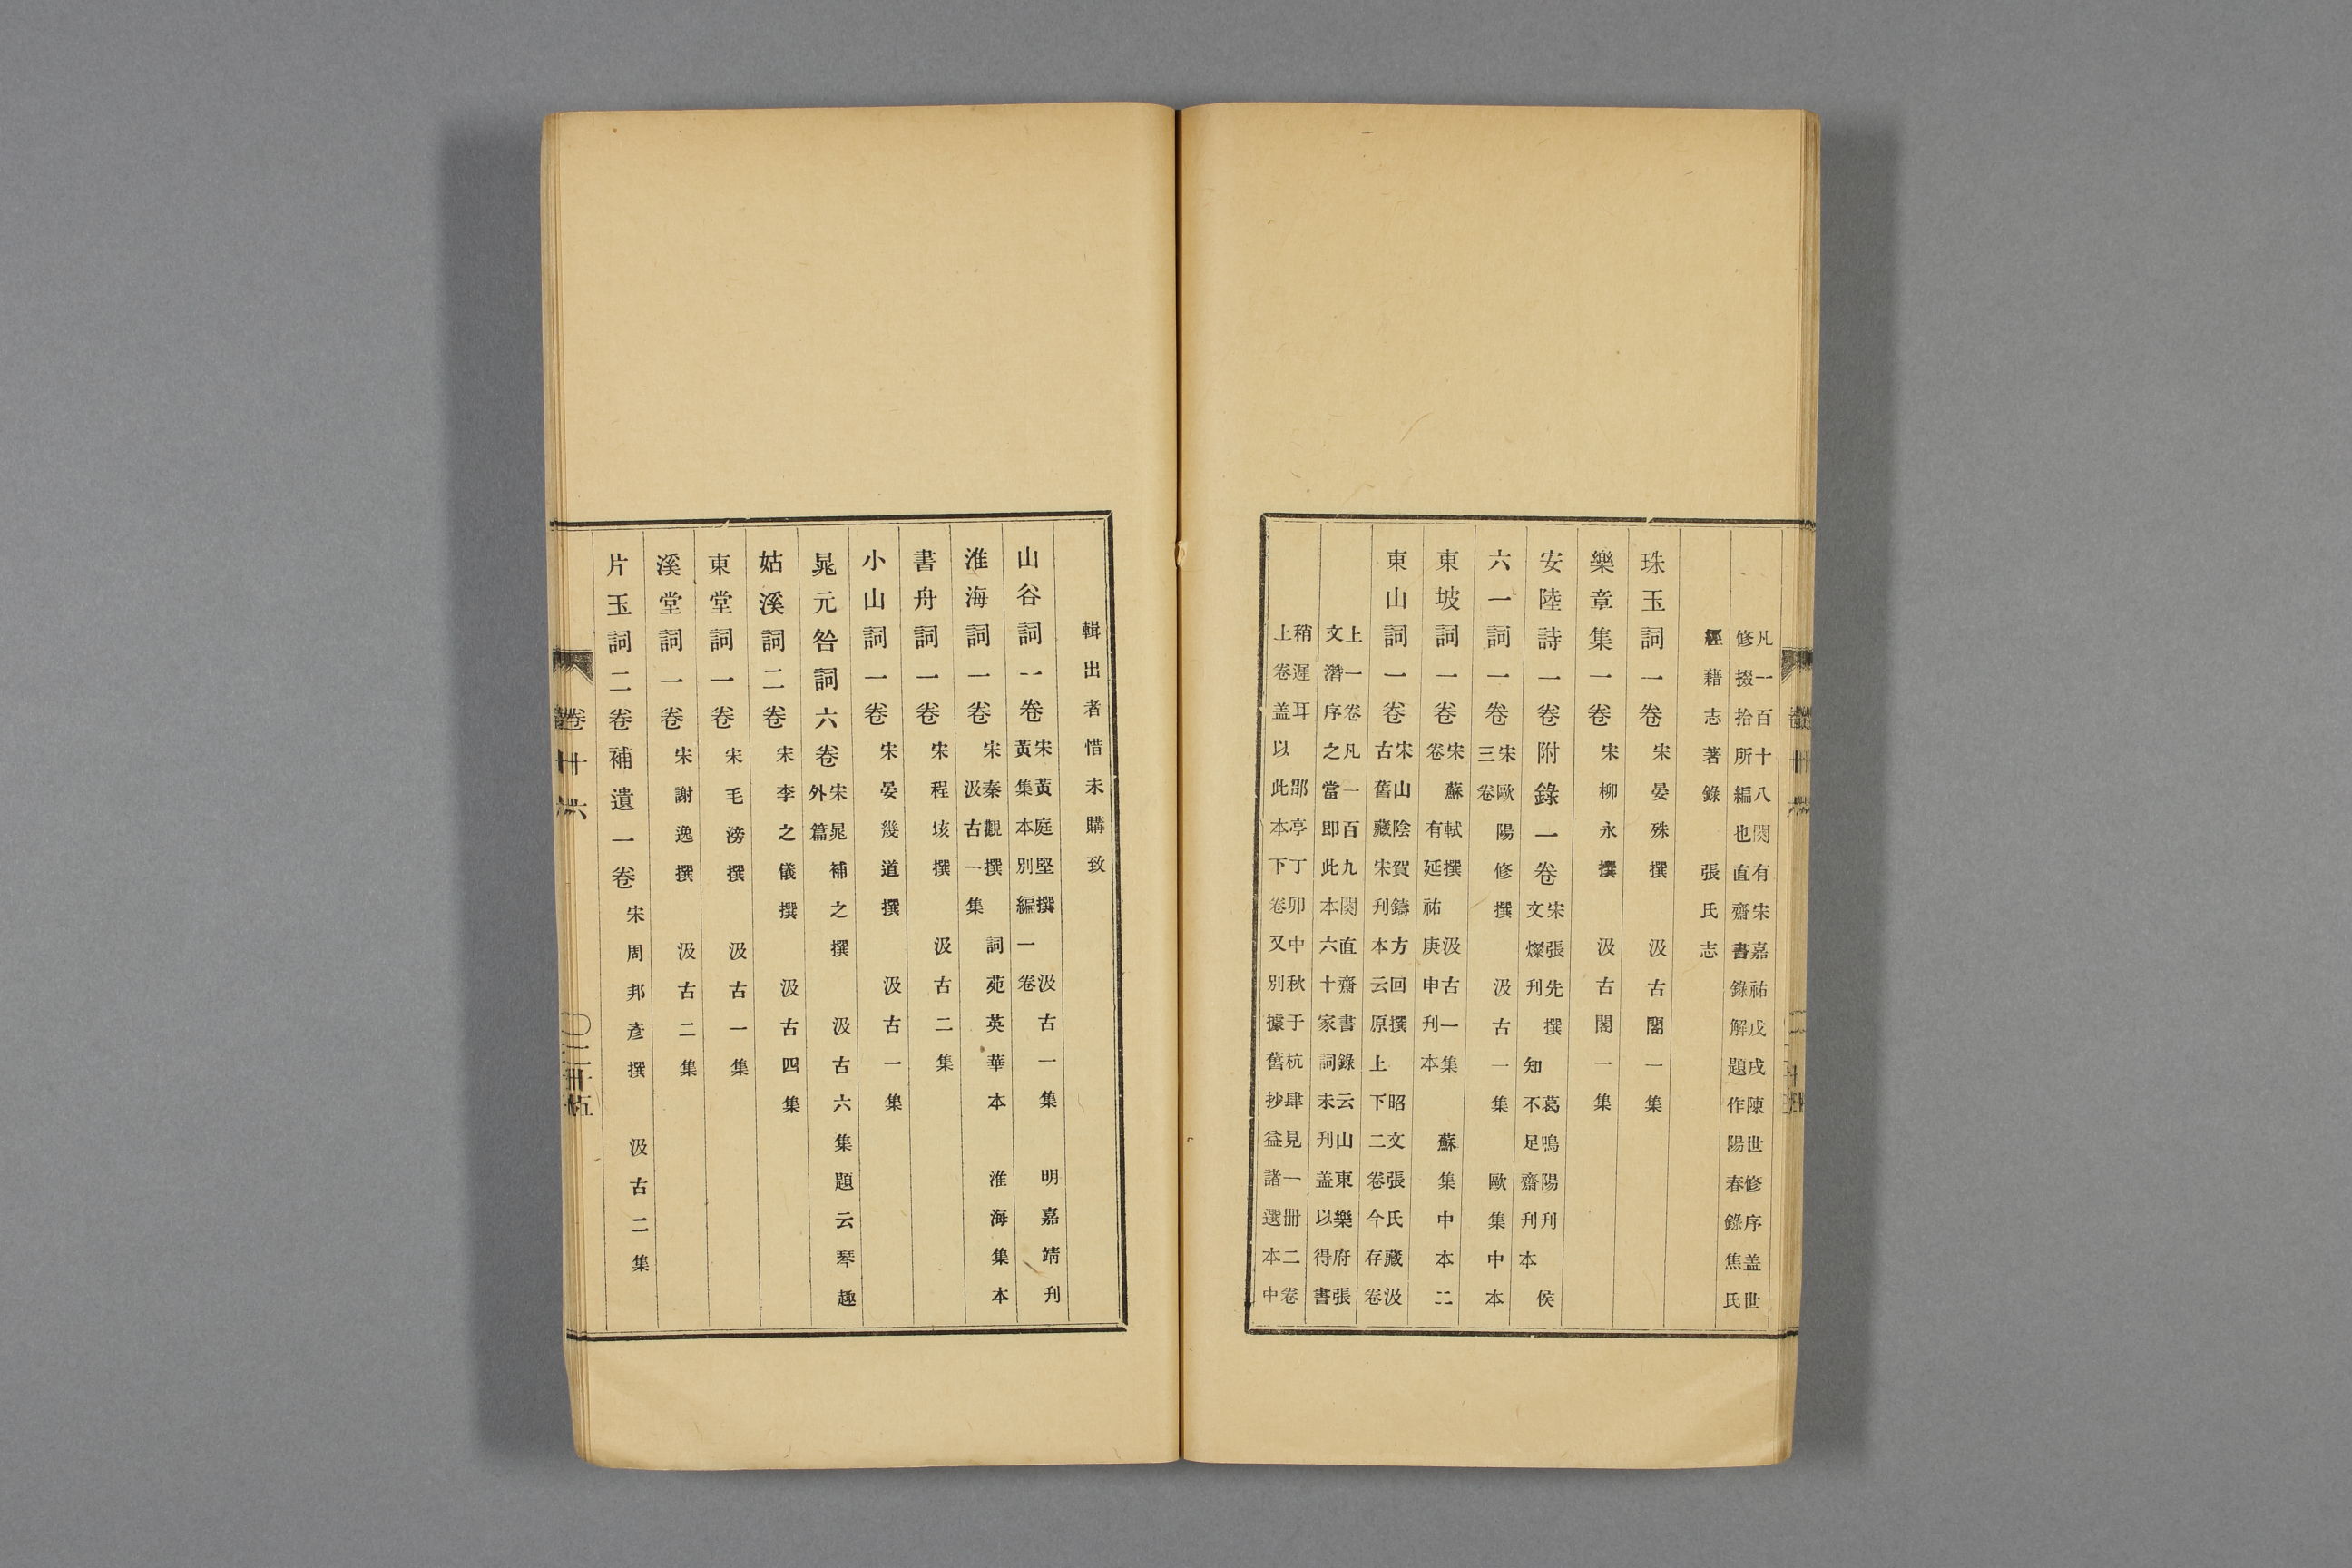 凡一百十八闋有宋嘉祐戊戌陳世修序盖世
修掇拾所編也直齋書錄解題作陽春錄焦氏
經籍志著錄　張氏志
珠玉詞一卷宋晏殊撰　汲古閣一集
樂章集一卷宋柳永撰　汲古閣一集
安陸詩一卷附錄一卷宋張先撰　葛鳴陽刊　侯
文燦刊　知不足齋刊本
六一詞一卷宋歐陽修撰　汲古一集　歐集中本
三卷
東坡詞一卷宋蘇軾撰　汲古一集　蘇集中本二
卷　有延祐庚申刊本
東山詞一卷宋山陰賀鑄方回撰　昭文張氏藏汲
古舊藏宋刊本云原上下二卷今存卷
上一卷凡一百九闋直齋書錄云山東樂府張
文潛序之當即此本六十家詞未刊盖以得書
稍遲耳　郘亭丁卯中秋于杭肆見一册二卷
上卷盖以此本下卷又別據舊抄益諸選本中
輯出者惜未購致
山谷詞一卷宋黃庭堅撰　汲古一集　明嘉靖刊
黃集本別編一卷
淮海詞一卷宋秦觀撰　詞苑英華本　淮海集本
汲古一集
書舟詞一卷宋程垓撰　汲古二集
小山詞一卷宋晏幾道撰　汲古一集
晁元咎詞六卷宋晁補之撰　汲古六集題云琴趣
外篇
姑溪詞二卷宋李之儀撰　汲古四集
東堂詞一卷宋毛滂撰　汲古一集
溪堂詞一卷宋謝逸撰　汲古二集
片玉詞二卷補遺一卷宋周邦彥撰　汲古二集
卷十六